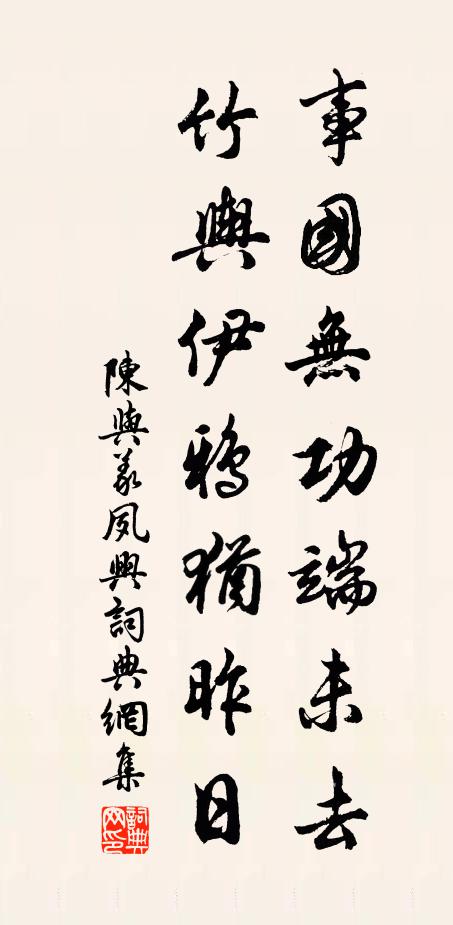 事國無功端未去
竹輿伊鴉猶昨日
陳與義夙興詞典網集
詞典網印